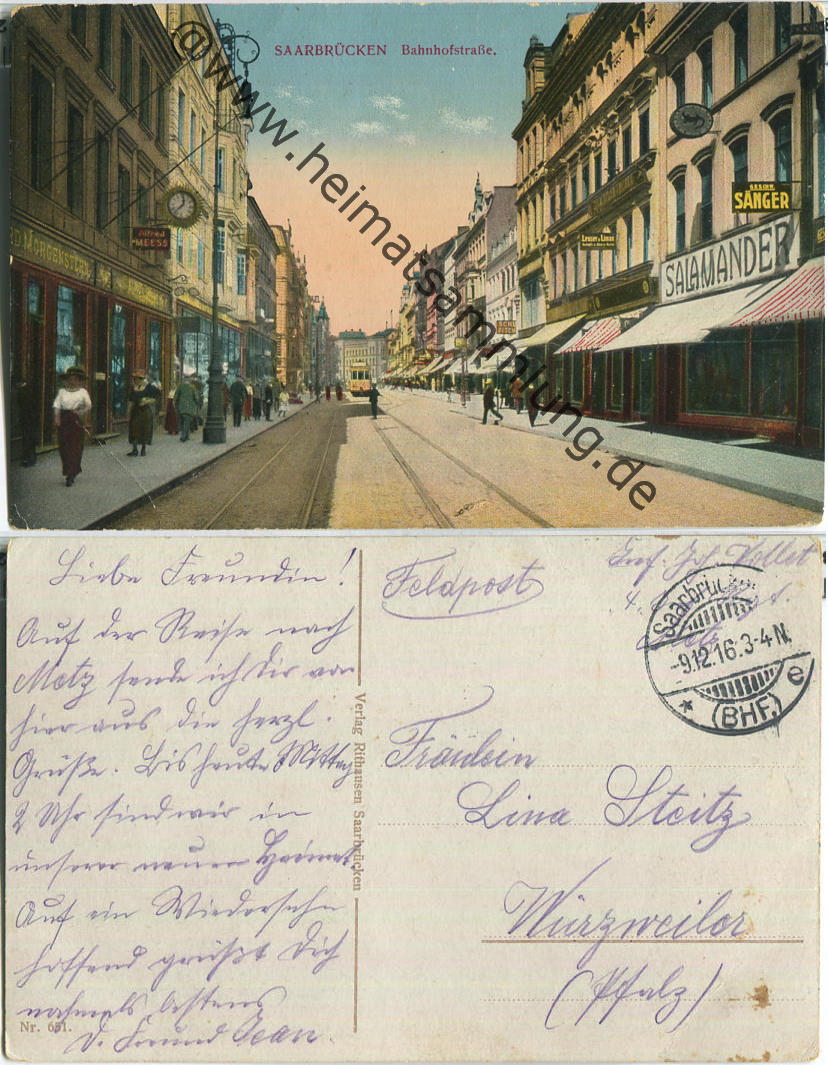 SAARBRÜCKEN Bahnhofstraße.
@www.heimatsammlung.de
Alfred
MEESS
D MORGENSTERN
GESCHW.
SÄNGER
SALAMANDER
Lesser & Liman
Liebe Freundin!
Auf der Reise nach
Metz sende ich Dir von
hier aus die herzl.
Grüße. Bis heute Mittag
2 Uhr sind wir in
unserer neuen Heimat
Auf ein Wiedersehn
hoffend grüßt Dich
nahmals bestens
D. Freund Jean.
Nr. 651.
Verlag Rithausen Saarbrücken
Feldpost
Inf. Joh. Vollet
4.
Saarbrücken
-9.12.16.3-4N.
* (BHF.) e
Fräulein
Lina Steitz
Würzweiler
(Pfalz)